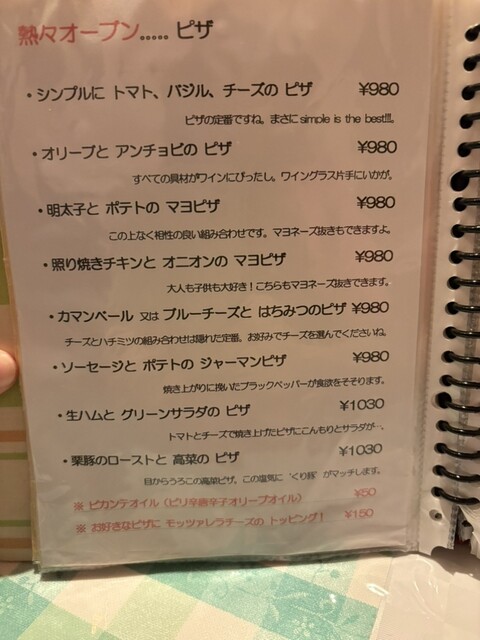 熱々オーブン..... ピザ
・シンプルに トマト、バジル、チーズの ピザ ¥980
ピザの定番ですね。まさにsimple is the best!!!。
・オリーブと アンチョビの ピザ ¥980
すべての具材がワインにぴったし。ワイングラス片手にいかが。
・明太子と ポテトの マヨピザ ¥980
この上なく相性の良い組み合わせです。マヨネーズ抜きもできますよ。
・照り焼きチキンと オニオンの マヨピザ ¥980
大人も子供も大好き！こちらもマヨネーズ抜きできます。
・カマンベール 又は ブルーチーズと はちみつのピザ ¥980
チーズとハチミツの組み合わせは隠れた定番。お好みでチーズを選んでくださいね。
・ソーセージと ポテトの ジャーマンピザ ¥980
焼き上がりに挽いたブラックペッパーが食欲をそそります。
・生ハムと グリーンサラダの ピザ ¥1030
トマトとチーズで焼き上げたピザにこんもりとサラダが…。
・栗豚のローストと 高菜の ピザ ¥1030
目からうろこの高菜ピザ。この塩気に‘くり豚’がマッチします。
※ ピカンテオイル（ピリ辛唐辛子オリーブオイル） ¥50
※ お好きなピザに モッツァレラチーズの トッピング！ ¥150